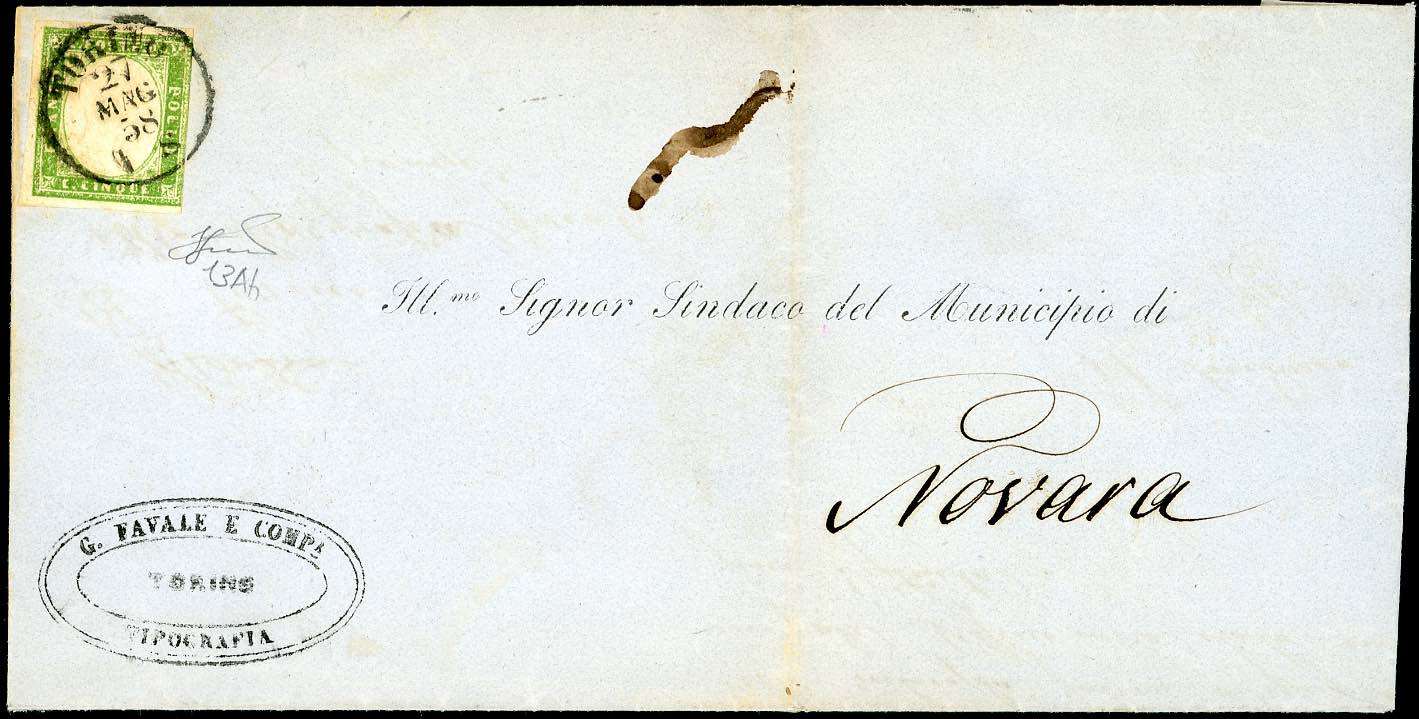 TORINO
27
MAG
58
FRANCO BOLLO
C. CINQUE
13Ah
Ill.mo Signor Sindaco del Municipio di
Novara
G. FAVALE E COMPA
TORINO
TIPOGRAFIA